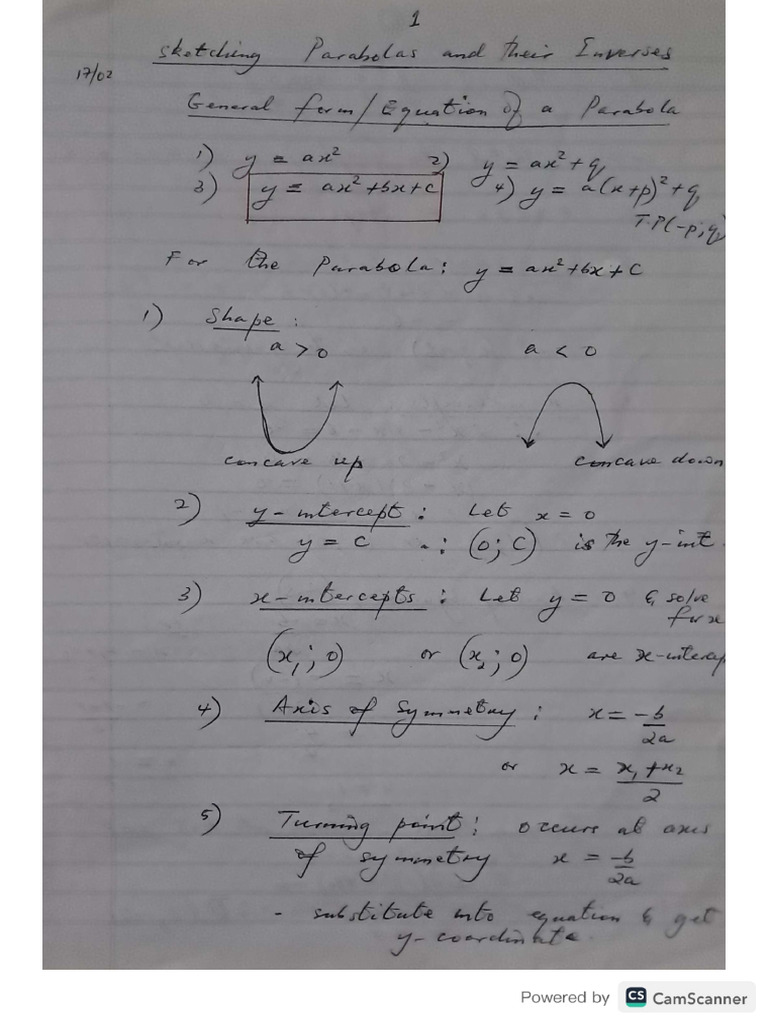 1
Sketching Parabolas and their Inverses
17/02
General form/Equation of a Parabola
1) y = ax² 2) y = ax² + q
3) y = ax² + bx + c 4) y = a(x+p)² + q
T.P(-p; q)
For the Parabola: y = ax² + bx + c
1) Shape :
a > 0 a < 0
concave up concave down
2) y-intercept : Let x = 0
y = c ∴ (0; c) is the y-int
3) x-intercepts : Let y = 0 & solve
for x
(x₁; 0) or (x₂; 0) are x-intercep
4) Axis of symmetry : x = -b/2a
or x = x₁ + x₂/2
5) Turning point : occurs at axis
of symmetry x = -b/2a
- substitute into equation & get
y-coordinate.
Powered by CS CamScanner